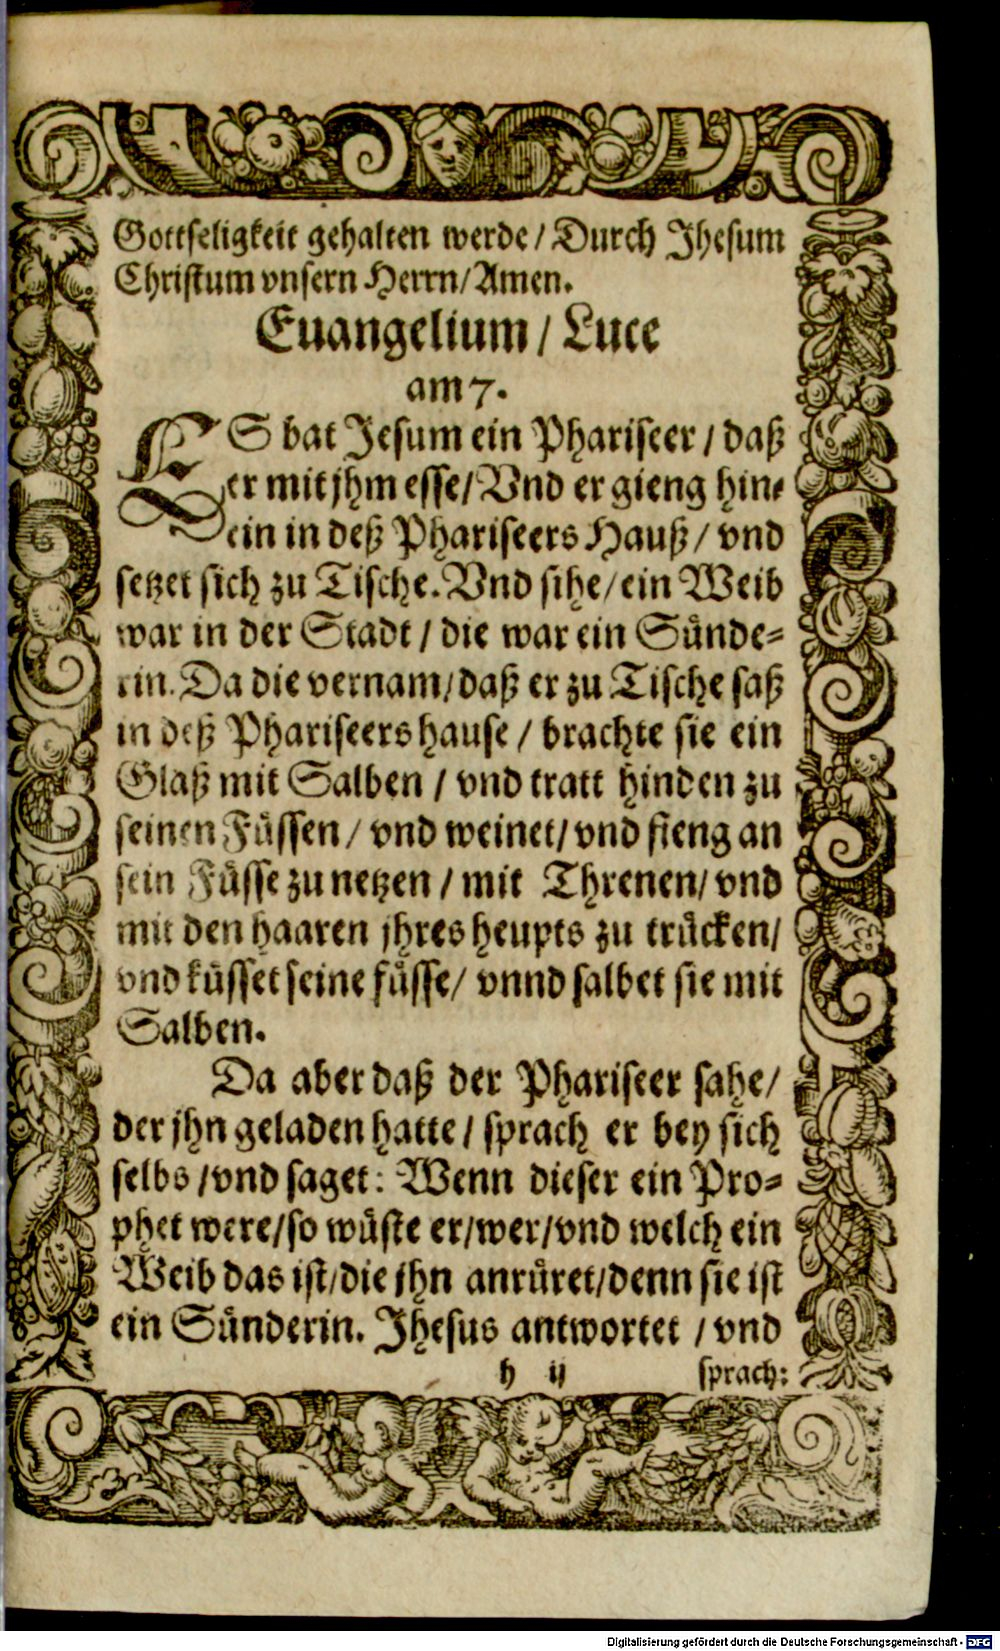 Gottseligkeit gehalten werde / Durch Jhesum
Christum vnsern Herrn / Amen.
Euangelium / Luce
am 7.
ES bat Jesum ein Phariseer / daß
er mit jhm esse / Vnd er gieng hin-
ein in deß Phariseers Hauß / vnd
setzet sich zu Tische. Vnd sihe / ein Weib
war in der Stadt / die war ein Sünde-
rin. Da die vernam / daß er zu Tische saß
in deß Phariseers hause / brachte sie ein
Glaß mit Salben / vnd tratt hinden zu
seinen Füssen / vnd weinet / vnd fieng an
sein Füsse zu netzen / mit Threnen / vnd
mit den haaren jhres heupts zu trücken /
vnd küsset seine füsse / vnnd salbet sie mit
Salben.
Da aber daß der Phariseer sahe /
der jhn geladen hatte / sprach er bey sich
selbs / vnd saget: Wenn dieser ein Pro-
phet were / so wüste er / wer / vnd welch ein
Weib das ist / die jhn anrüret / denn sie ist
ein Sünderin. Jhesus antwortet / vnd
h ij sprach:
Digitalisierung gefördert durch die Deutsche Forschungsgemeinschaft - DFG